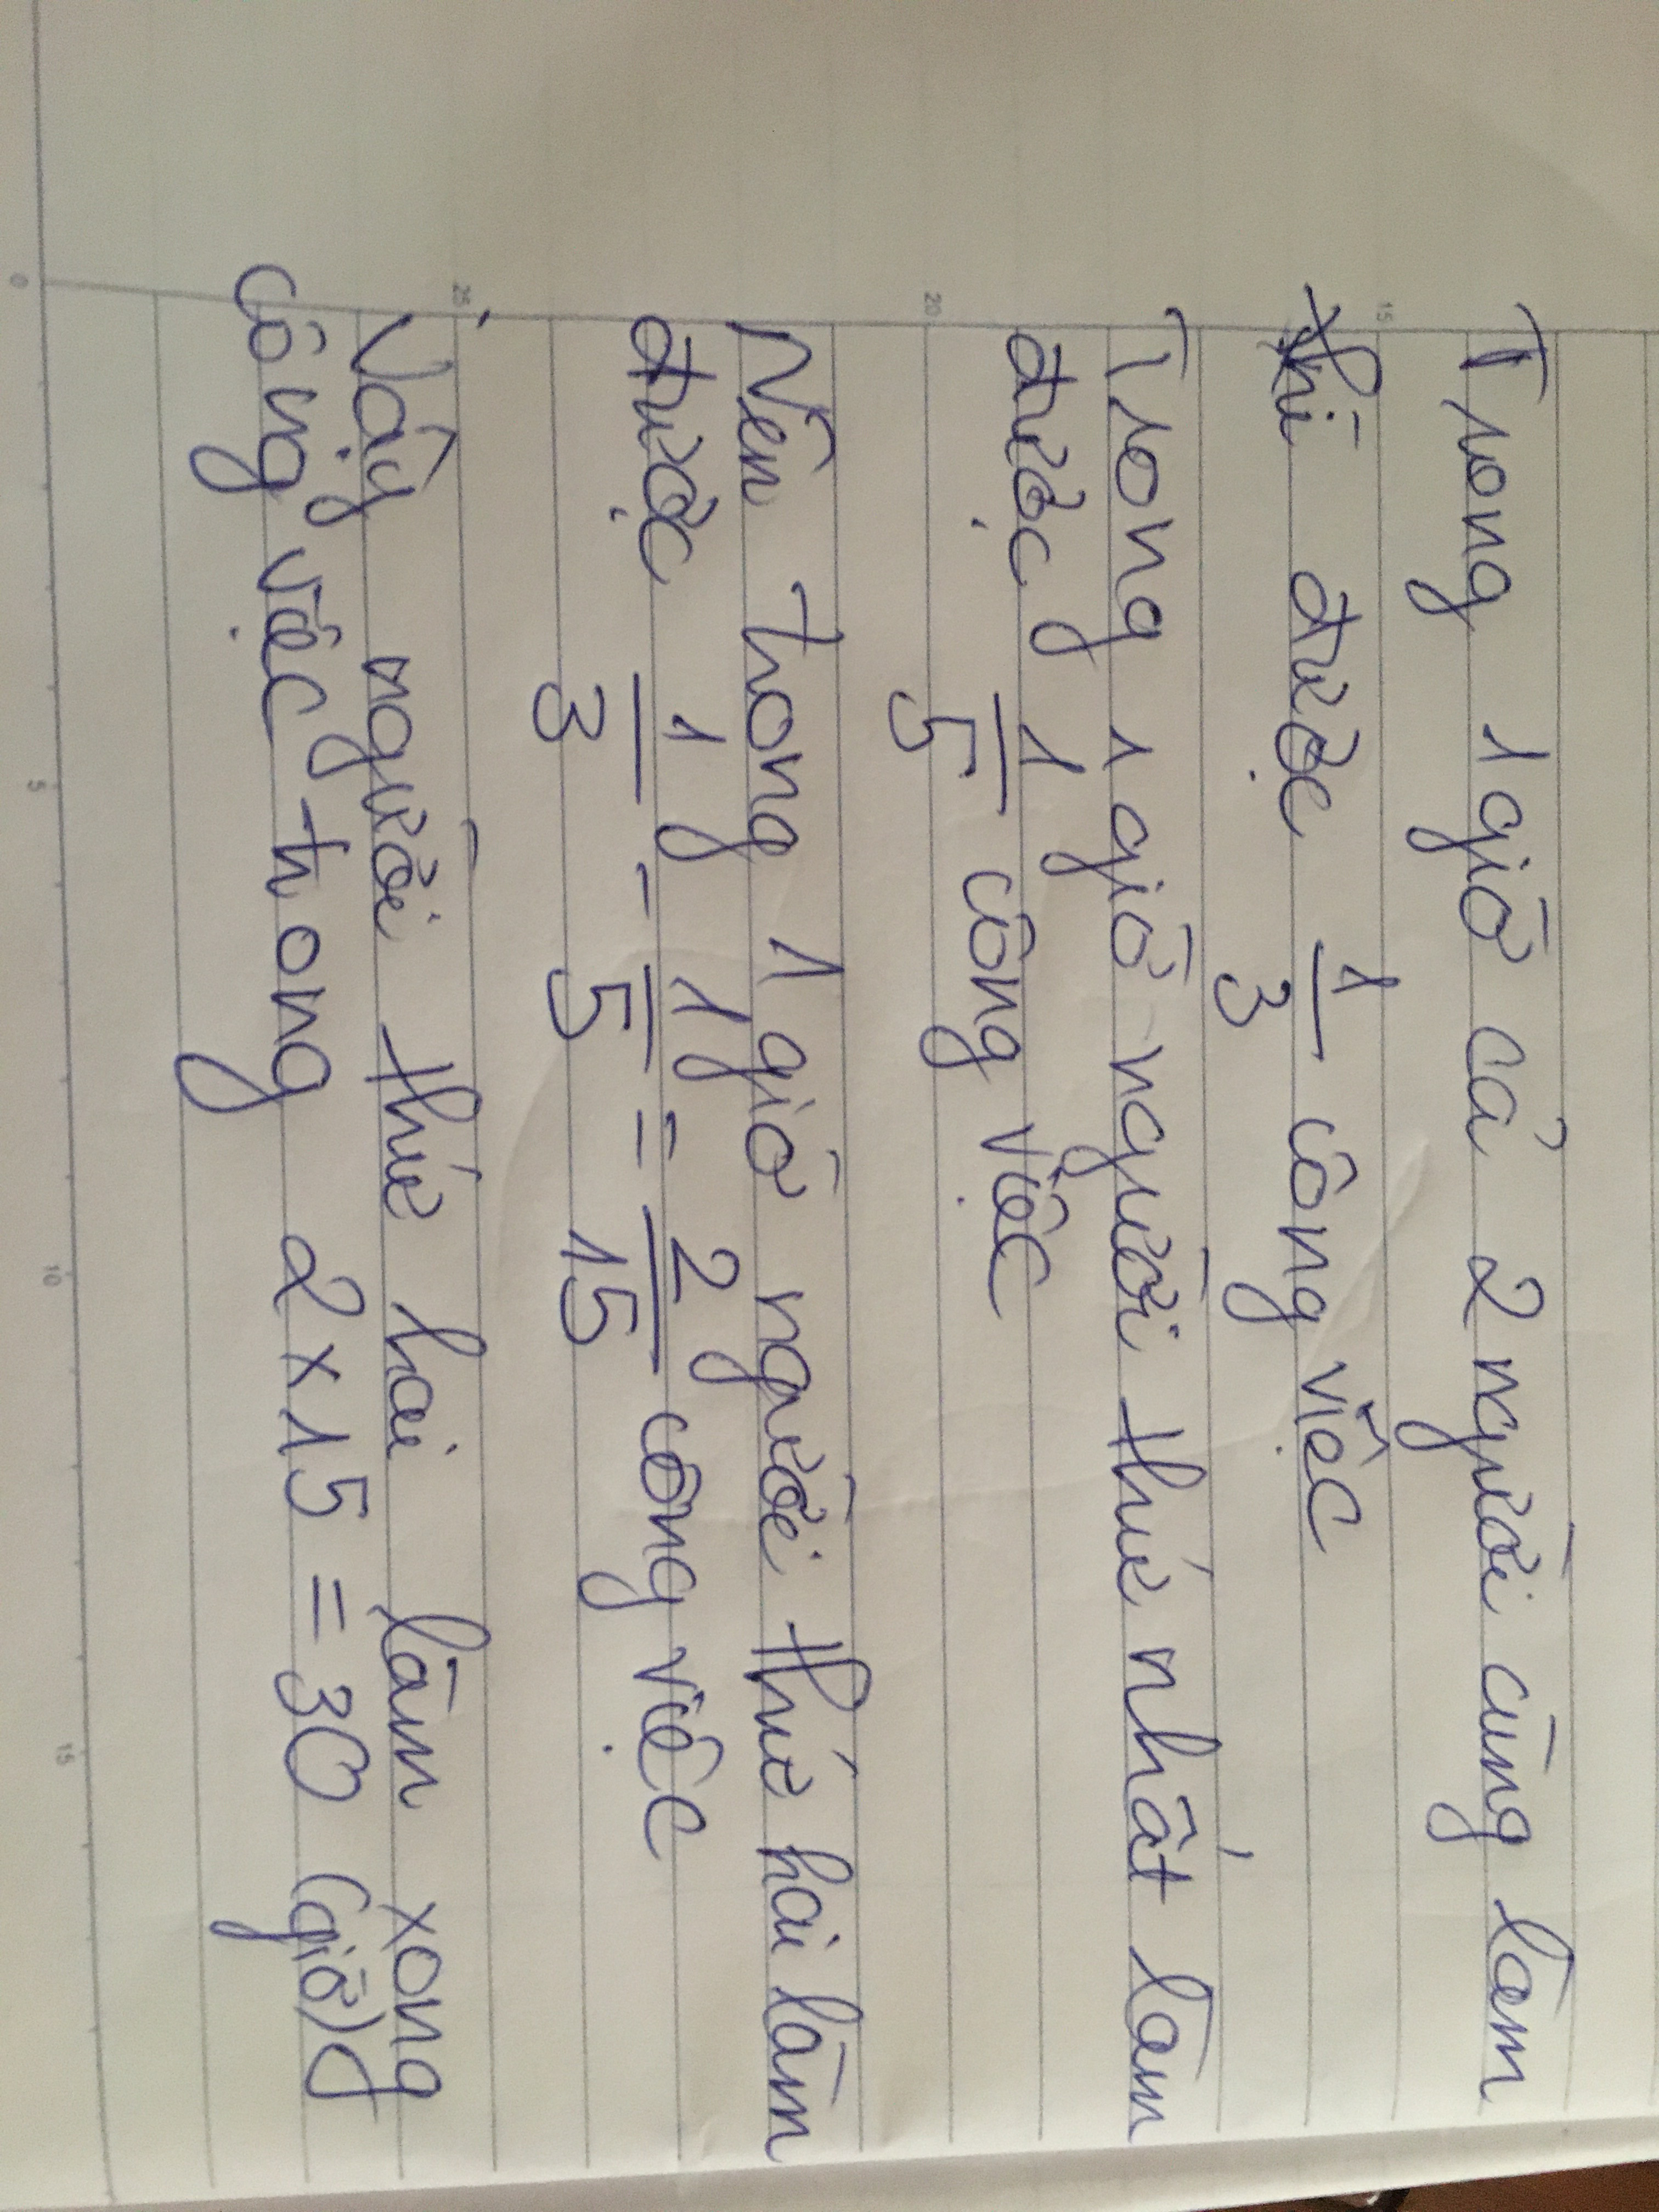 Trong 1 giờ cả 2 người cùng làm
thì được 1/3 công việc
Trong 1 giờ người thứ nhất làm
được 1/5 công việc
Nên trong 1 giờ người thứ hai làm
được 1/3 - 1/5 = 2/15 công việc
Vậy người thứ hai làm xong
công việc trong 2 x 15 = 30 (giờ)
0 5 10 15
15 20 25